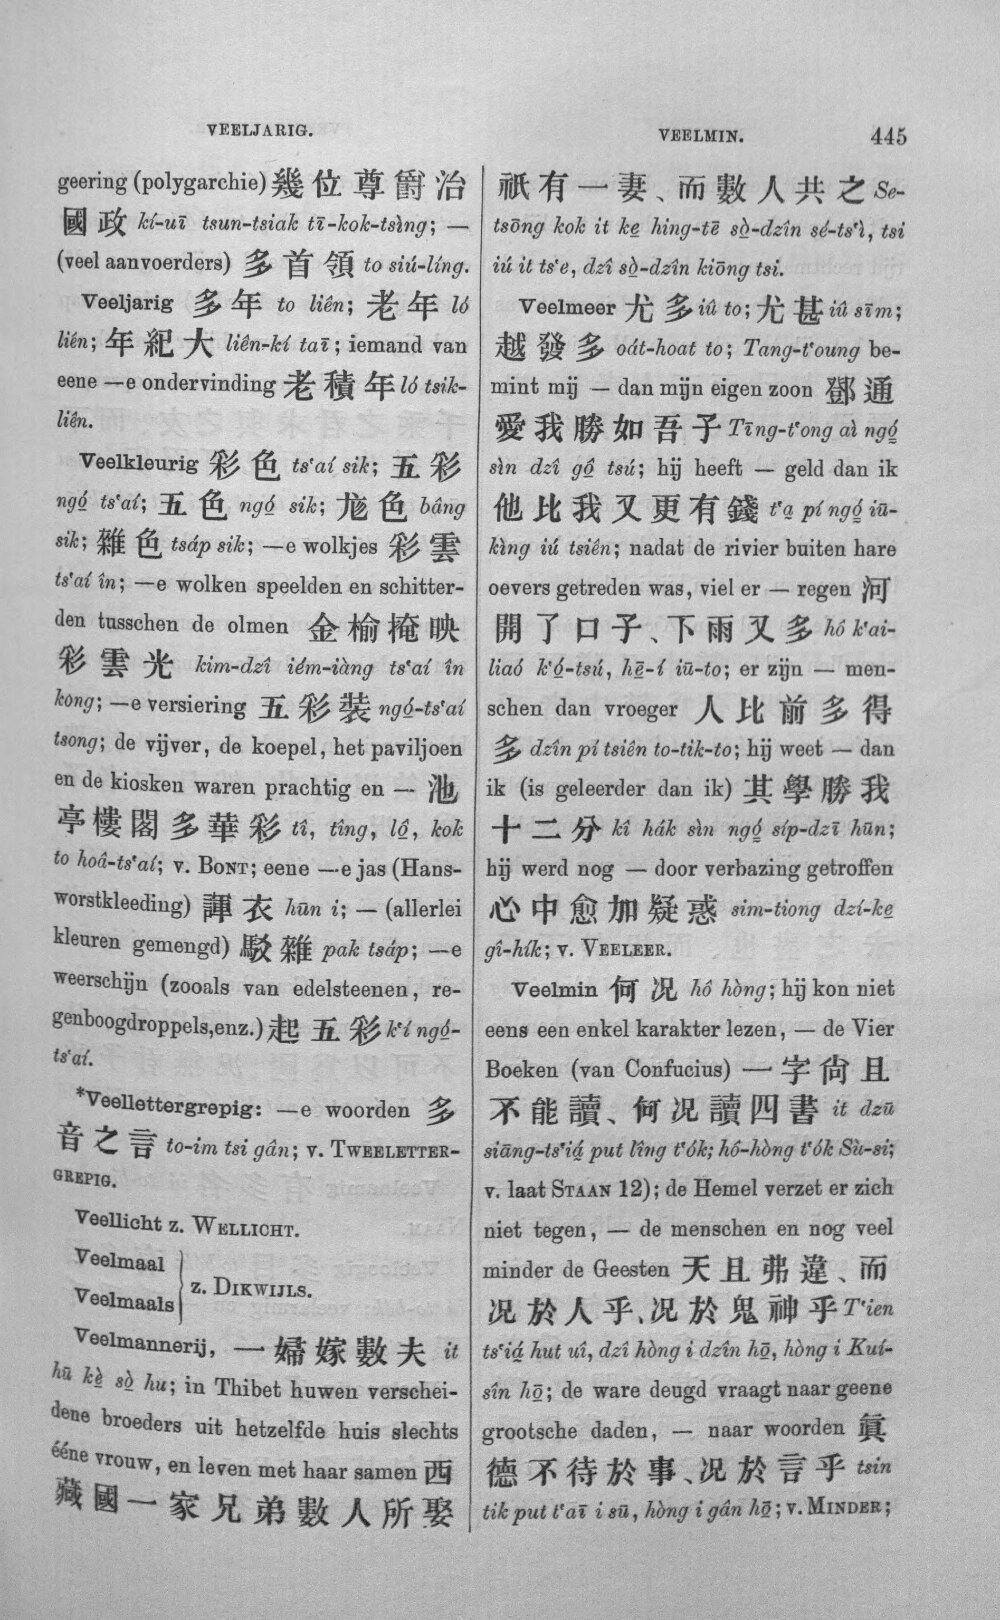 VEELJARIG.
geering (polygarchie) 幾位尊爵治
國政 kí-uī tsun-tsiak tī-kok-tsìng; —
(veel aanvoerders) 多首領 to siú-líng.
Veeljarig 多年 to liên; 老年 ló
liên; 年紀大 liên-kí taī; iemand van
eene —e ondervinding 老積年 ló tsik-
liên.
Veelkleurig 彩色 tsʻaí sik; 五彩
ngó̤ tsʻaí; 五色 ngó̤ sik; 尨色 bâng
sik; 雜色 tsáp sik; —e wolkjes 彩雲
tsʻaí în; —e wolken speelden en schitter-
den tusschen de olmen 金榆掩映
彩雲光 kim-dzî iém-iàng tsʻaí în
kong; —e versiering 五彩裝 ngó̤-tsʻaí
tsong; de vijver, de koepel, het paviljoen
en de kiosken waren prachtig en — 池
亭樓閣多華彩 tî, tîng, lô̤, kok
to hoâ-tsʻaí; v. BONT; eene —e jas (Hans-
worstkleeding) 諢衣 hūn i; — (allerlei
kleuren gemengd) 駁雜 pak tsáp; —e
weerschijn (zooals van edelsteenen, re-
genboogdroppels, enz.) 起五彩 kʻí ngó̤-
tsʻaí.
*Veellettergrepig: —e woorden 多
音之言 to-im tsi gân; v. TWEELETTER-
GREPIG.
Veellicht z. WELLICHT.
Veelmaal
Veelmaals
z. DIKWIJLS.
Veelmannerij, 一婦嫁數夫 it
hū kè sò̤ hu; in Thibet huwen verschei-
dene broeders uit hetzelfde huis slechts
ééne vrouw, en leven met haar samen 西
藏國一家兄弟數人所娶
VEELMIN. 445
祇有一妻、而數人共之 Se-
tsōng kok it ke̤ hing-tē sò̤-dzîn sé-tsʻì, tsi
iú it tsʻe, dzî sò̤-dzîn kiōng tsi.
Veelmeer 尤多 iû to; 尤甚 iû sīm;
越發多 oát-hoat to; Tang-tʻoung be-
mint mij — dan mijn eigen zoon 鄧通
愛我勝如吾子 Tīng-tʻong aì ngó̤
sìn dzî gô̤ tsú; hij heeft — geld dan ik
他比我又更有錢 tʻa̤ pí ngó̤ iū-
kìng iú tsiên; nadat de rivier buiten hare
oevers getreden was, viel er — regen 河
開了口子、下雨又多 hô kʻai-
liaó kʻó̤-tsú, hē̤-í iū-to; er zijn — men-
schen dan vroeger 人比前多得
多 dzîn pí tsiên to-tik-to; hij weet — dan
ik (is geleerder dan ik) 其學勝我
十二分 kî hák sìn ngó̤ síp-dzī hūn;
hij werd nog — door verbazing getroffen
心中愈加疑惑 sim-tiong dzí-ke̤
gî-hík; v. VEELEER.
Veelmin 何况 hô hòng; hij kon niet
eens een enkel karakter lezen, — de Vier
Boeken (van Confucius) 一字尙且
不能讀、何况讀四書 it dzū
siāng-tsʻiá̤ put lîng tʻók; hô-hòng tʻók Sù-si;
v. laat STAAN 12); de Hemel verzet er zich
niet tegen, — de menschen en nog veel
minder de Geesten 天且弗違、而
况於人乎、况於鬼神乎 Tʻien
tsʻiá̤ hut uî, dzî hòng i dzîn hō̤, hòng i Kuí-
sîn hō̤; de ware deugd vraagt naar geene
grootsche daden, — naar woorden 眞
德不待於事、况於言乎 tsin
tik put tʻaī i sū, hòng i gân hō̤; v. MINDER;